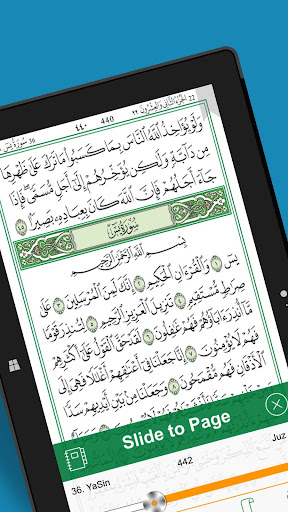 22 الجزء الثاني والعشرون ٢٢
440 ٤٤٠
36 سورة يس
وَلَوْ يُؤَاخِذُ ٱللَّهُ ٱلنَّاسَ بِمَا كَسَبُوا۟ مَا تَرَكَ عَلَىٰ ظَهْرِهَا
مِن دَآبَّةٍ وَلَٰكِن يُؤَخِّرُهُمْ إِلَىٰٓ أَجَلٍ مُّسَمًّى فَإِذَا
جَآءَ أَجَلُهُمْ فَإِنَّ ٱللَّهَ كَانَ بِعِبَادِهِۦ بَصِيرًۢا ٤٥
سُورَةُ يسٓ
بِسْمِ ٱللَّهِ ٱلرَّحْمَٰنِ ٱلرَّحِيمِ
يسٓ ١ وَٱلْقُرْءَانِ ٱلْحَكِيمِ ٢ إِنَّكَ لَمِنَ ٱلْمُرْسَلِينَ ٣ عَلَىٰ
صِرَٰطٍ مُّسْتَقِيمٍ ٤ تَنزِيلَ ٱلْعَزِيزِ ٱلرَّحِيمِ ٥ لِتُنذِرَ قَوْمًا
مَّآ أُنذِرَ ءَابَآؤُهُمْ فَهُمْ غَٰفِلُونَ ٦ لَقَدْ حَقَّ ٱلْقَوْلُ عَلَىٰٓ أَكْثَرِهِمْ
فَهُمْ لَا يُؤْمِنُونَ ٧ إِنَّا جَعَلْنَا فِىٓ أَعْنَٰقِهِمْ أَغْلَٰلًا فَهِىَ إِلَى
ٱلْأَذْقَانِ فَهُم مُّقْمَحُونَ ٨ وَجَعَلْنَا مِنۢ بَيْنِ أَيْدِيهِمْ سَدًّا
Slide to Page
36. YaSin 442 Juz